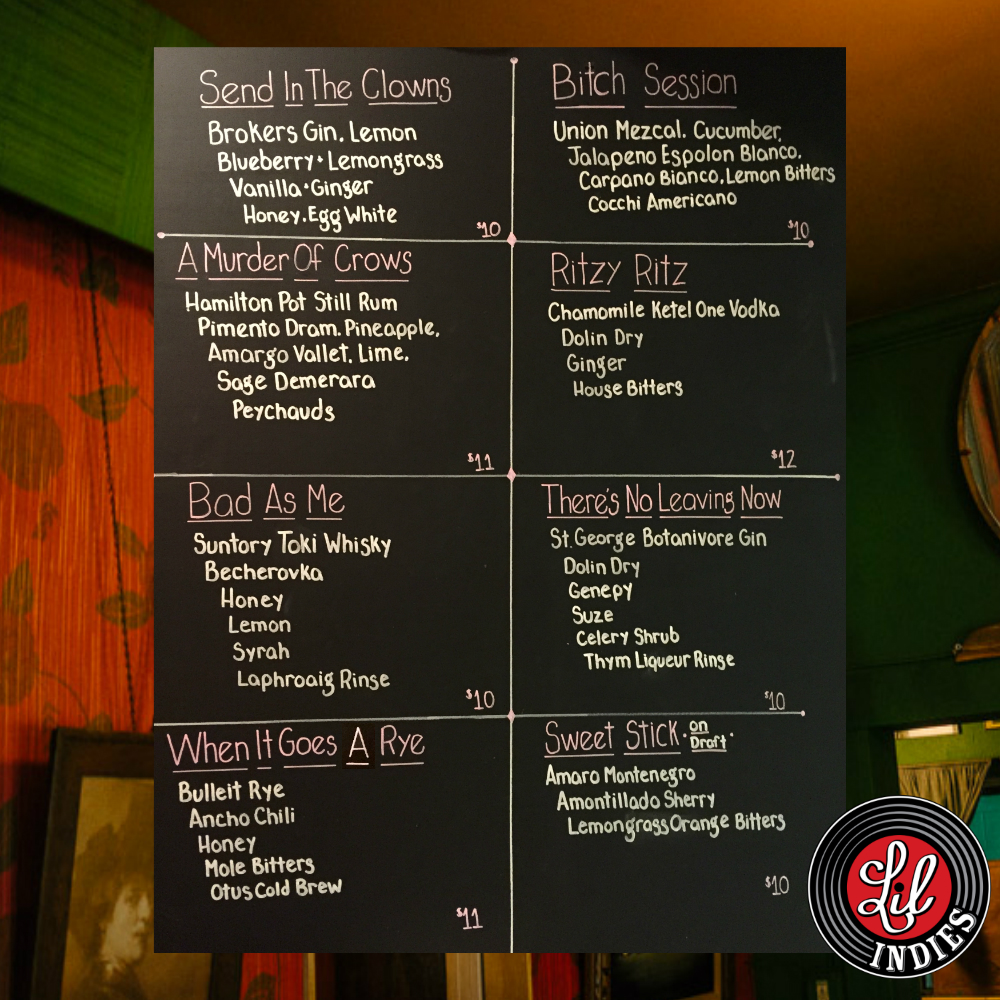 Send In The Clowns
Brokers Gin. Lemon
Blueberry · Lemongrass
Vanilla · Ginger
Honey. Egg White
$10
Bitch Session
Union Mezcal. Cucumber,
Jalapeno Espolon Blanco.
Carpano Bianco. Lemon Bitters
Cocchi Americano
$10
A Murder Of Crows
Hamilton Pot Still Rum
Pimento Dram. Pineapple,
Amargo Vallet. Lime.
Sage Demerara
Peychauds
$11
Ritzy Ritz
Chamomile Ketel One Vodka
Dolin Dry
Ginger
House Bitters
$12
Bad As Me
Suntory Toki Whisky
Becherovka
Honey
Lemon
Syrah
Laphroaig Rinse
$10
There's No Leaving Now
St. George Botanivore Gin
Dolin Dry
Genepy
Suze
Celery Shrub
Thym Liqueur Rinse
$10
When It Goes A Rye
Bulleit Rye
Ancho Chili
Honey
Mole Bitters
Otus Cold Brew
$11
Sweet Stick · on Draft ·
Amaro Montenegro
Amontillado Sherry
Lemongrass Orange Bitters
$10
Lil
INDIES